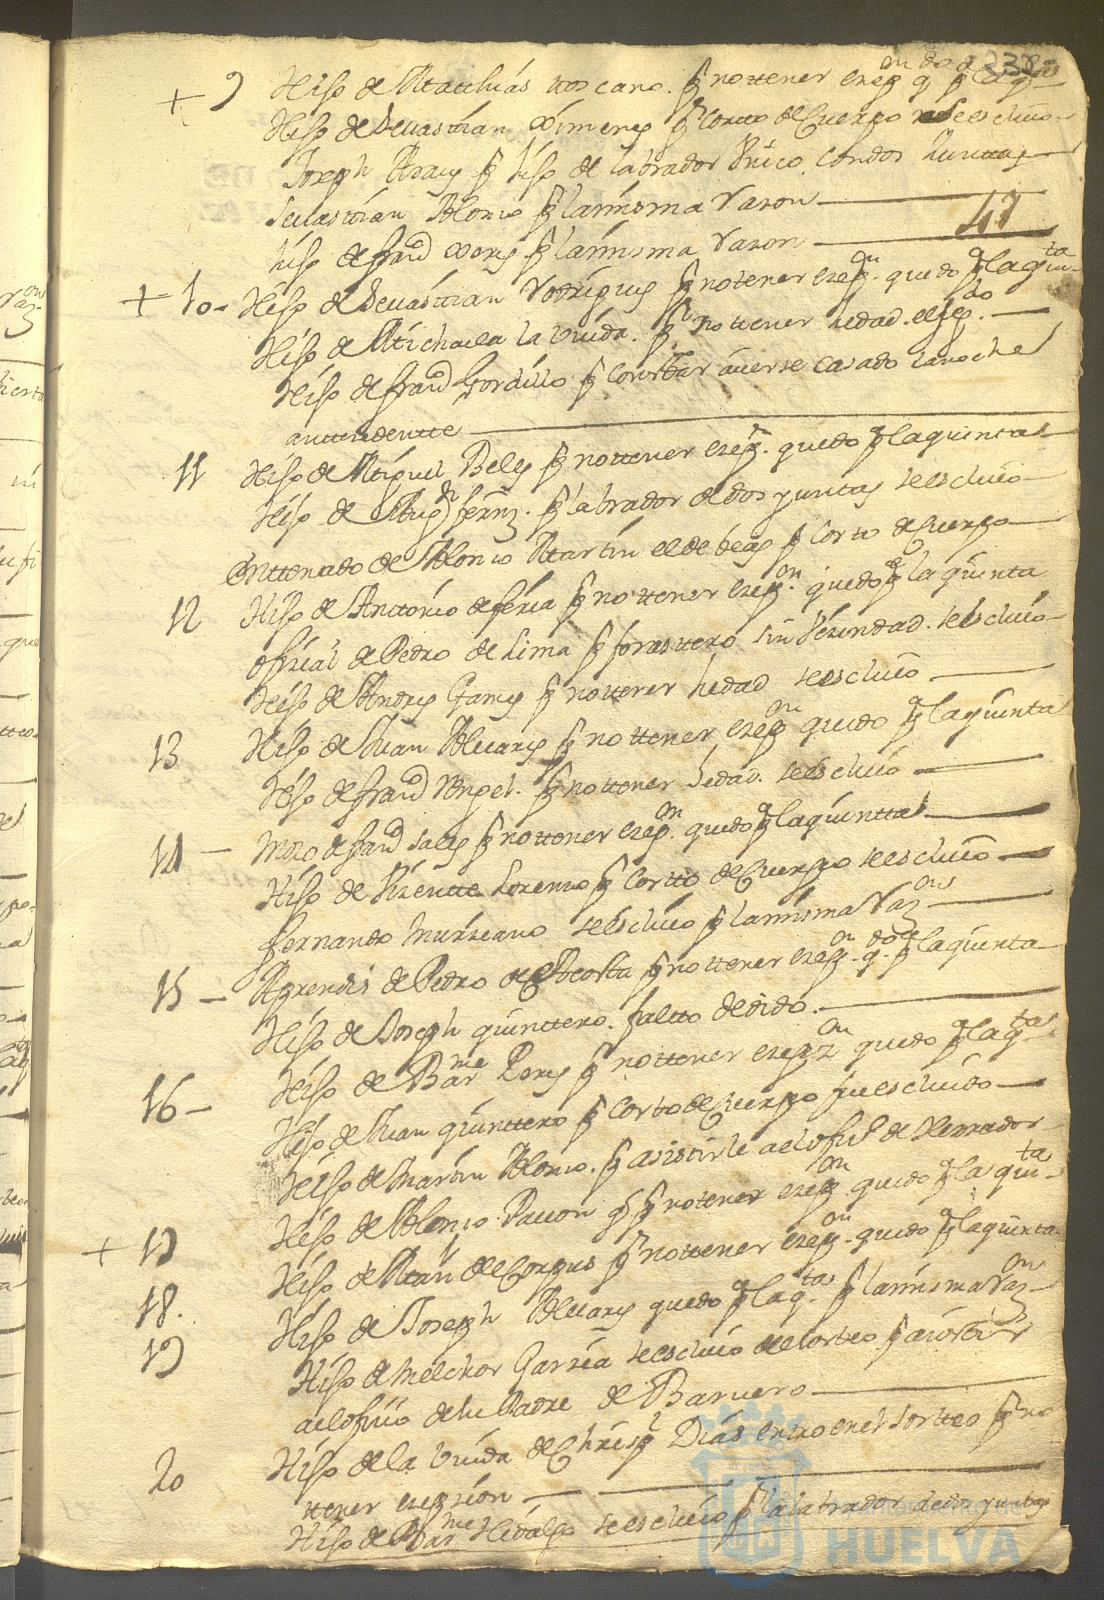 + 9 Hijo de Matthias toscano. p no ttener exep.on qdo p la q.tas
Hijo de Sevasttian Ximenes p corto de Cuerpo se escluio
Joseph Arias p hijo de labrador Unico, con dos Iuntas
Sevasttian Alonso p la misma Razon
47
hijo de fran.co p la misma Razon
+ 10 - Hijo de Sevasttian Rodrigues p no tener exep.on quedo p.a la q.ta
Hijo de Michaela la Viuda. p no ttener hedad. escluido.
Hijo de fran.co Gordillo p constar averse casado la noche
anttesedentte
11 Hijo de Miguel Veles p no ttener exep.n quedo p.a la quinta
Hijo de fern.z p labrador de dos yuntas se escluio
Enttenado de Alonso Martin el de beas p Corto de Cuerpo
12 Hijo de Anttonio de feria p no ttener exep.on quedo p.a la quinta
ofizial de Pedro de Lima p forasttero sin Vezindad. se escluio
Hijo de Andres Garces p no ttener hedad se escluio
13 Hijo de Juan Alvares p no ttener exep.on quedo p.a la quinta
Hijo de fran.co Angel. p no ttener hedad. se escluio
14 - Mozo de fran.co p no ttener exep.on quedo p.a la quintta
Hijo de Vizentte Lorenzo p Cortto de Cuerpo se escluio
fernando Murziano se escluio p la misma Raz.on
15 - Aprendis de Pedro de Acosta p no ttener exep.on q.do p.a la quinta
Hijo de Joseph quinttero. faltto de dedo.
16 - Hijo de Bar.me Peres p no ttener exepz.on quedo p.a la q.tas
Hijo de Juan quinttero p Corto de Cuerpo fue escluido
Hijo de Martin Alonso. p asistirle a el ofiz.o de Herrador
Hijo de Alonso Pavon q p no tener exep.on quedo p.a la qui.ta
+ 17 Hijo de de Corpus p no ttener exep.on quedo p.a la quinta
18. Hijo de Joseph Alvares quedo p.a la q.tas p la misma Raz.on
19 Hijo de Melchor Garzia se escluio del sorteo p asistir
a el ofizio de su Padre de Barvero
20 Hijo de la Viuda de Dias entro en el sortteo p no
ttener exepzion
Hijo de Bar.me Hidalgo se escluio p la labrador de dos yuntas
HUELVA